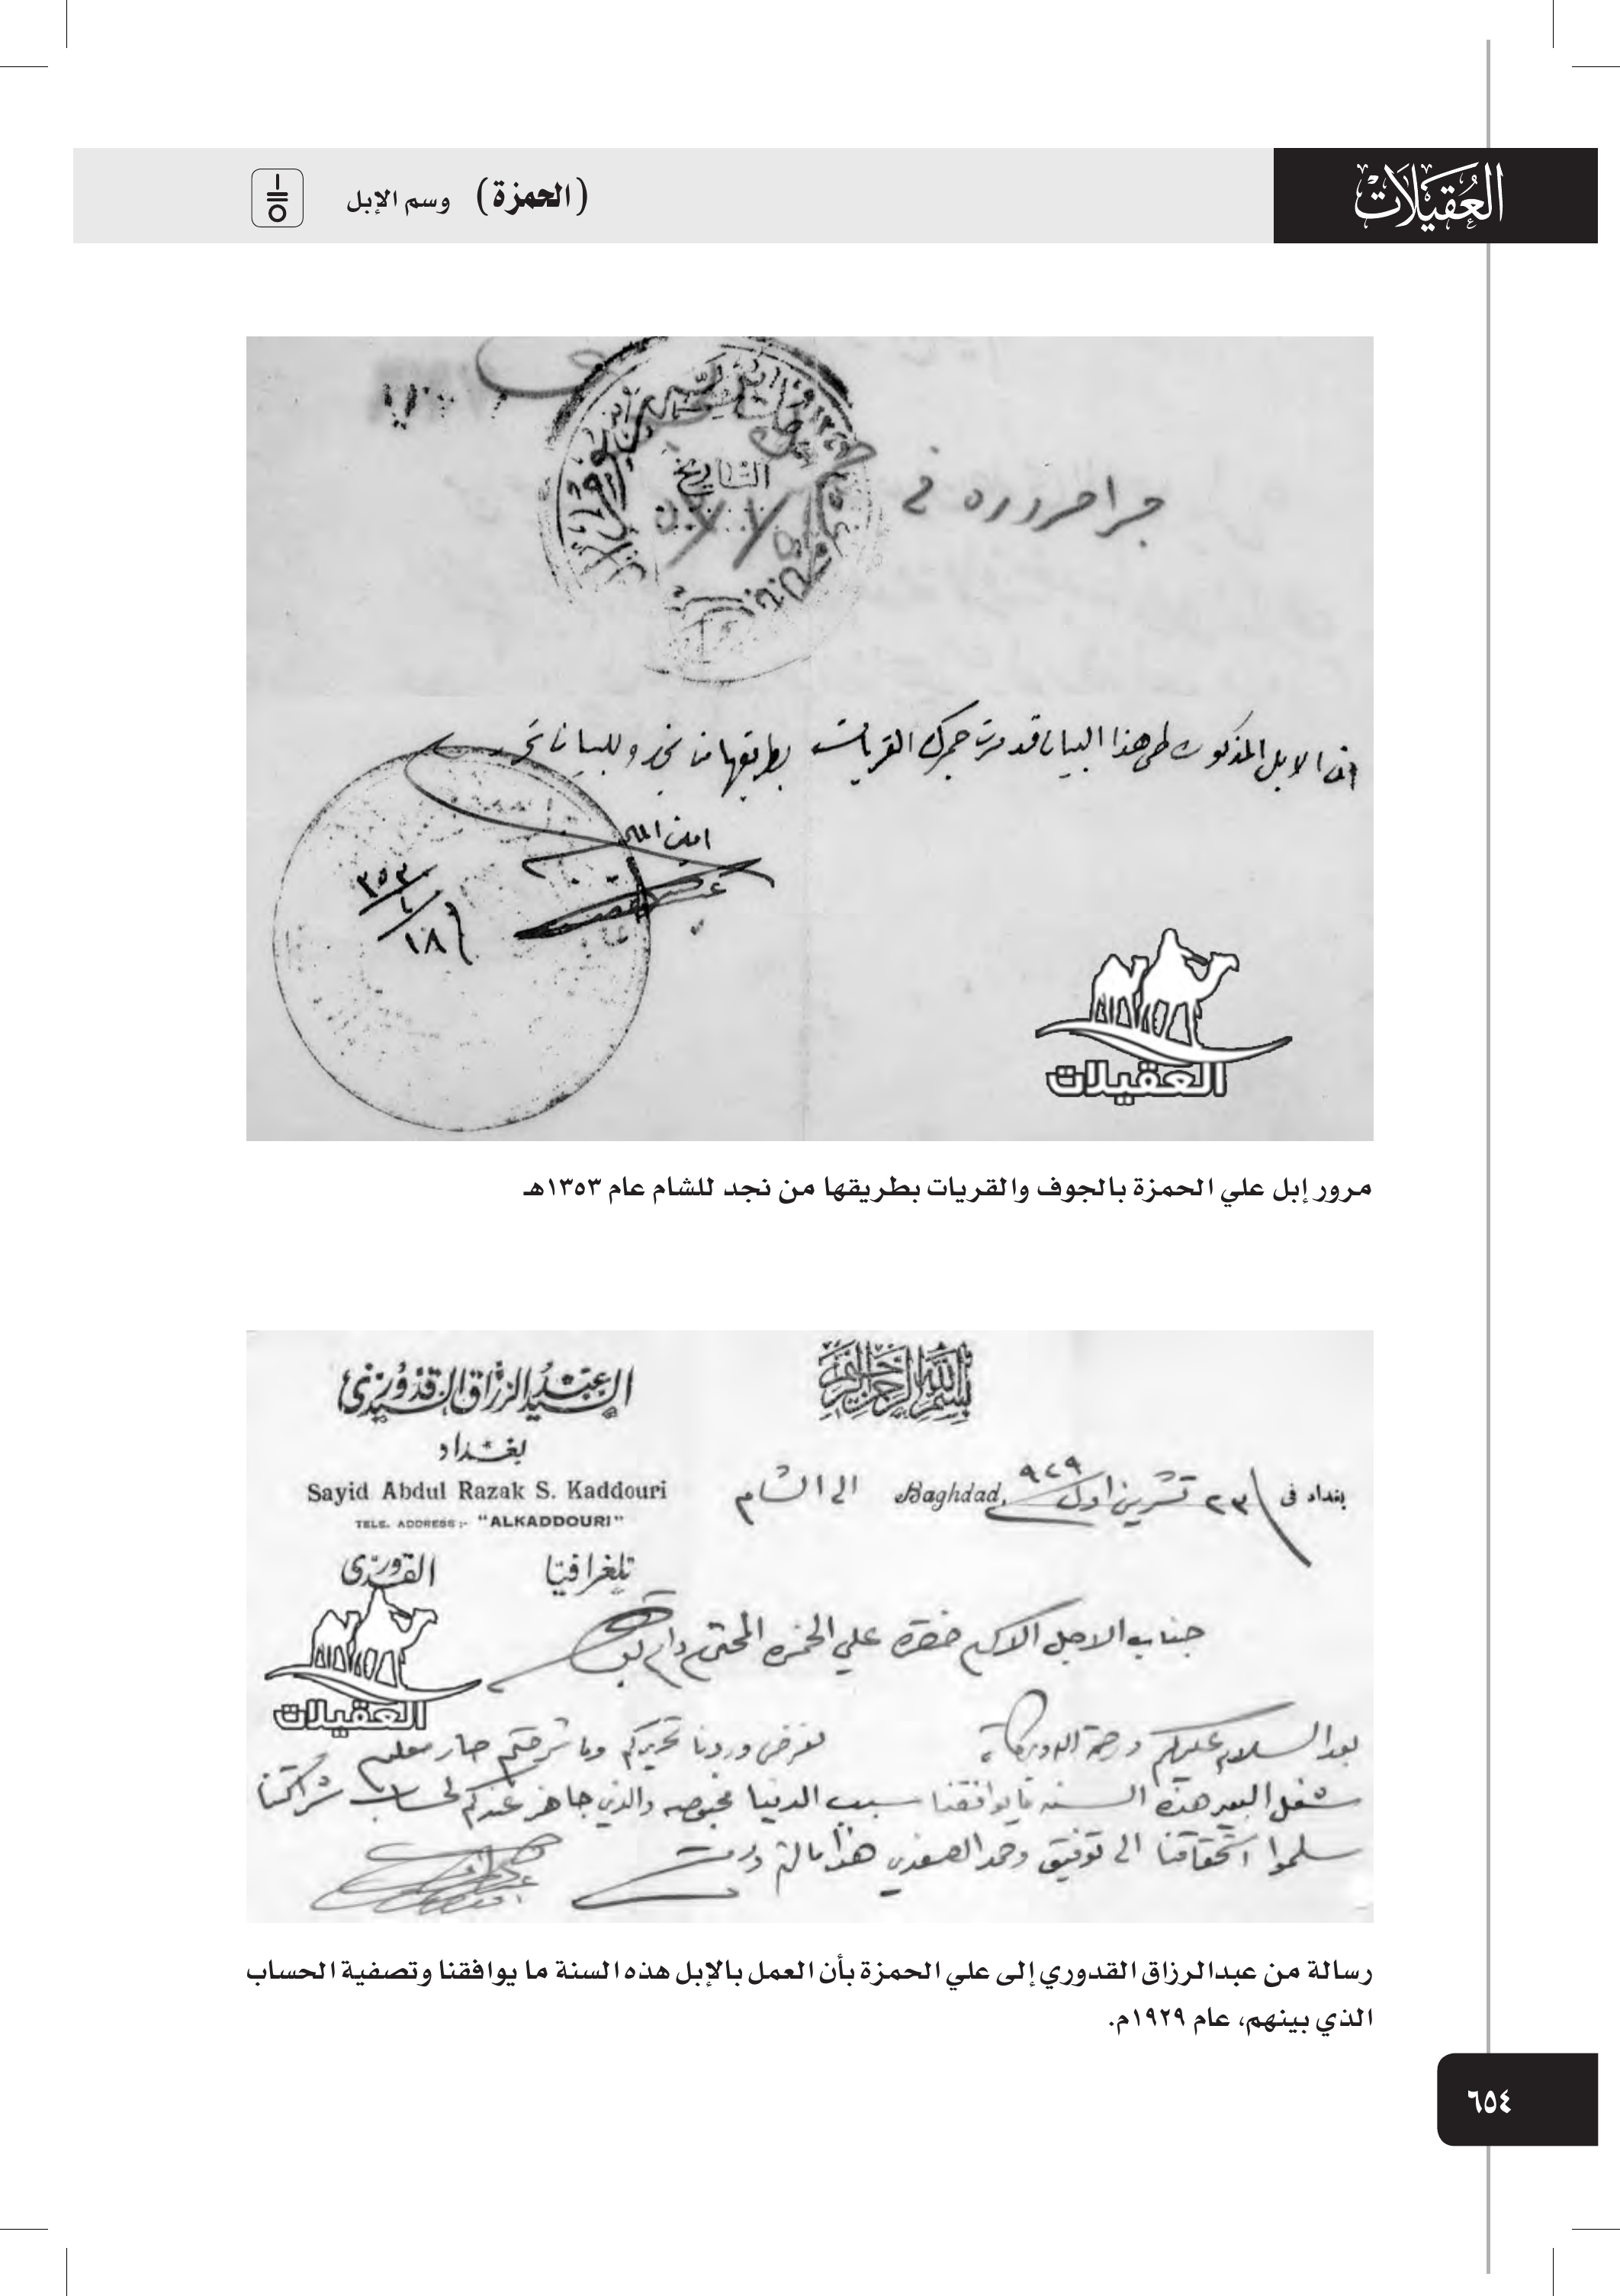 العُقيلات
(الحمزة) وسم الإبل
جرا مروره في
التاريخ
ان الابل المذكورت طي هذا البيان قد مرت جمرك القريات بطريقها من نجد وللبيان تحرر
امين المال
٣٥٣
١٨
العقيلات
مرور إبل علي الحمزة بالجوف والقريات بطريقها من نجد للشام عام ١٣٥٣هـ
بسم الله الرحمن الرحيم
السيد عبد الرزاق السيد قدوري
بغداد
Sayid Abdul Razak S. Kaddouri
TELE. ADDRESS:- "ALKADDOURI"
تلغرافيا القدوري
بغداد في ٢٣ تشرين اول ٩٢٩ Baghdad, الى الشام
العقيلات
جناب الاجل الاكرم حضرة علي الحمزه المحترم دام بقاه
بعد السلام عليكم ورحمة الله وبركاته نعرض وردنا تحريركم وما شرحتم صار معلوم
شغل البعير هذه السنه ما يوافقنا سبب الدنيا مخبوصه والذي جاهز عندكم لحساب شراكتنا
سلموا استحقاقنا الى توفيق وحمد الصفدي هذا ما لزم ودمت
رسالة من عبدالرزاق القدوري إلى علي الحمزة بأن العمل بالإبل هذه السنة ما يوافقنا وتصفية الحساب
الذي بينهم، عام ١٩٢٩م.
٦٥٤